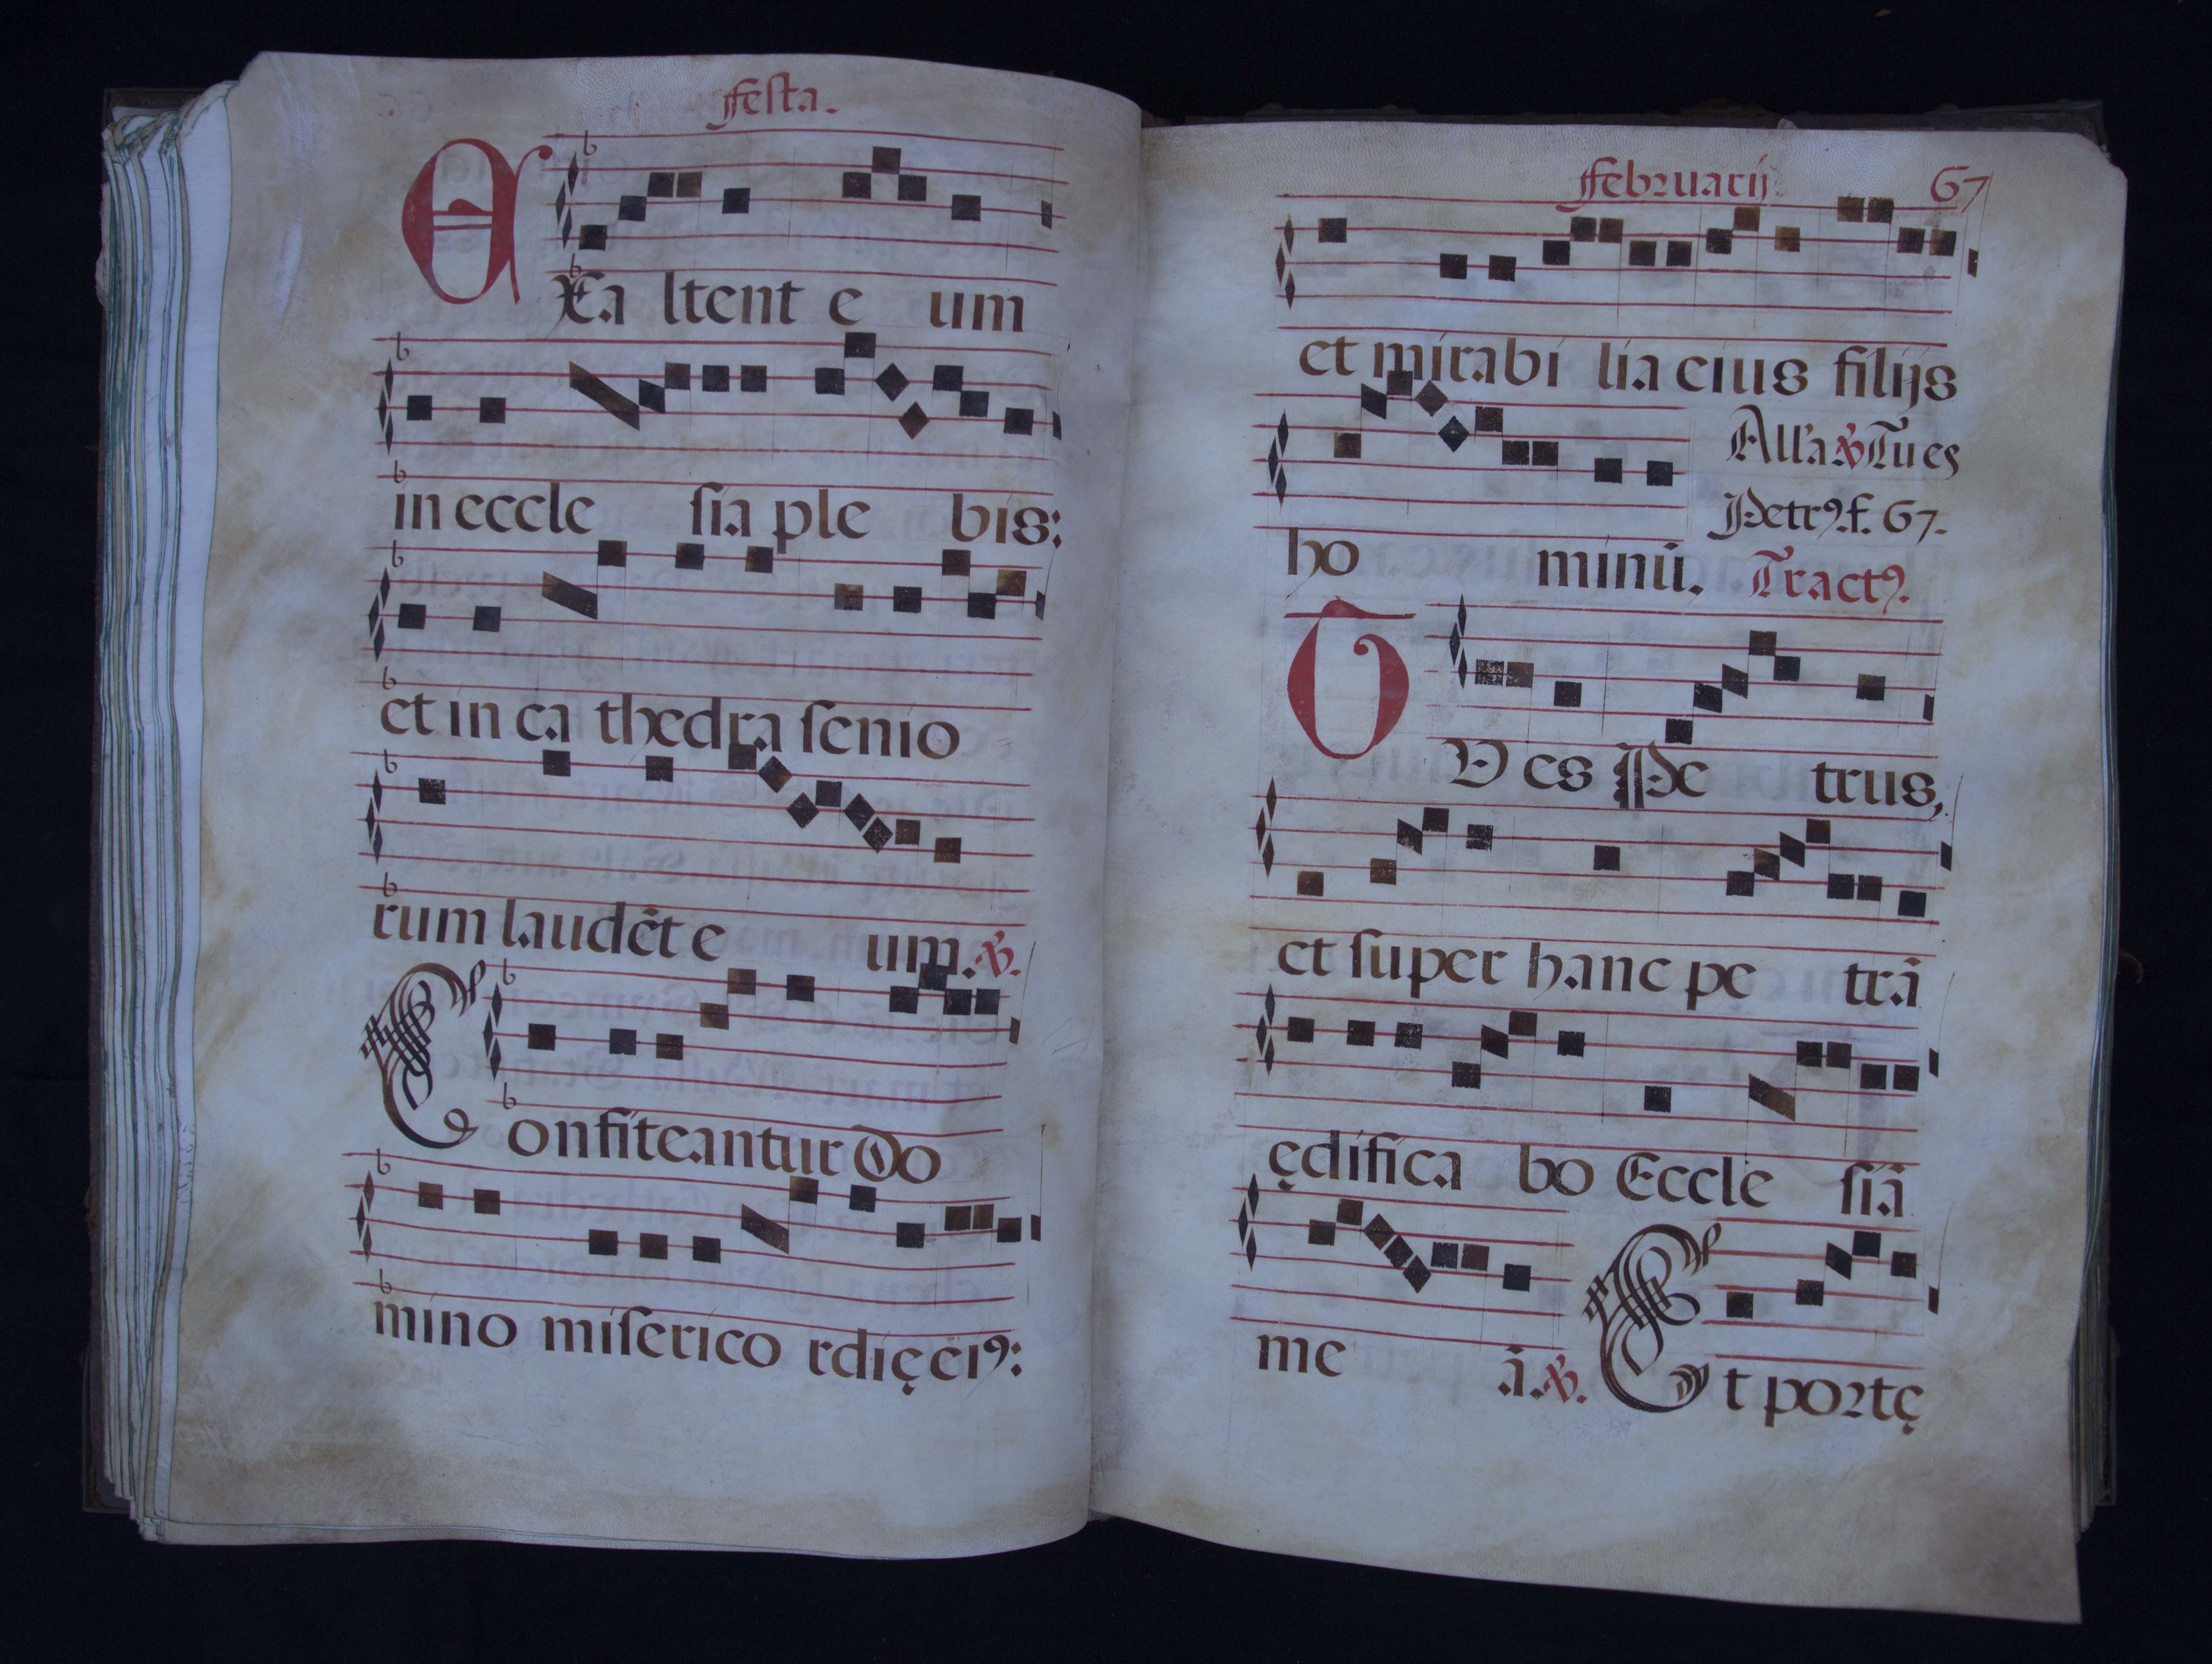 ffesta.
EXa ltent e um
in eccle sia ple bis:
et in ca thedra senio
rum laudēt e um. ℣.
Confiteantur Do
mino miserico rdię ei9:
ffebruarij. 67
et mirabi lia eius filijs
All'a ℣ Tu es
Petr9. f. 67.
ho minū. Tract9.
TV es Pe trus,
et super hanc pe trā
ędifica bo Eccle siā
me ā. ℣. Et portę